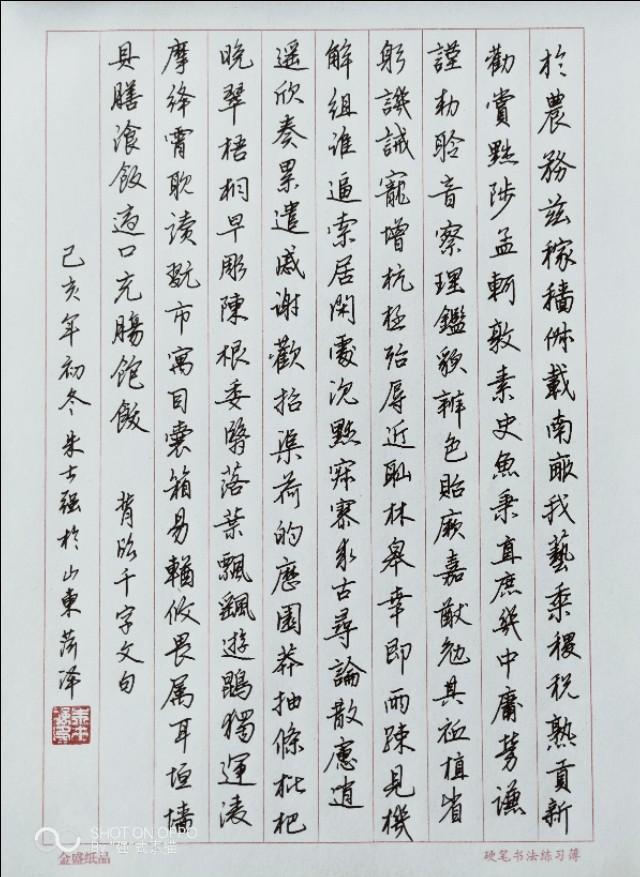 於農務兹稼穡俶載南畝我藝黍稷税熟貢新
勸賞黜陟孟軻敦素史魚秉直庶幾中庸勞謙
謹勑聆音察理鑑貌辨色貽厥嘉猷勉其祗植省
躬譏誡寵增抗極殆辱近恥林皋幸即兩疎見機
解組誰逼索居閑處沉默寂寥求古尋論散慮逍
遥欣奏累遣慼謝歡招渠荷的歷園莽抽條枇杷
晚翠梧桐早彫陳根委翳落葉飄飖遊鵾獨運凌
摩絳霄耽读翫市寓目囊箱易輶攸畏属耳垣墻
具膳飡飯適口充腸飽飫 背临千字文句
己亥年初冬朱士强於山東菏泽
SHOT ON OPPO
金盛纸品
硬笔书法练习簿